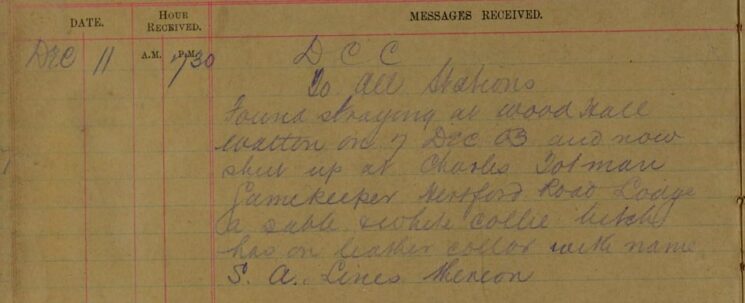 DATE. HOUR RECEIVED. MESSAGES RECEIVED.
A.M. P.M.
Dec 11 7/30 D C C
To All Stations
Found straying at Wood Hall
Watton on 7 Dec 03 and now
shut up at Charles Totman
Gamekeeper Hertford Road Lodge
a sable & white collie bitch
has on leather collar with name
S. A. Lines thereon